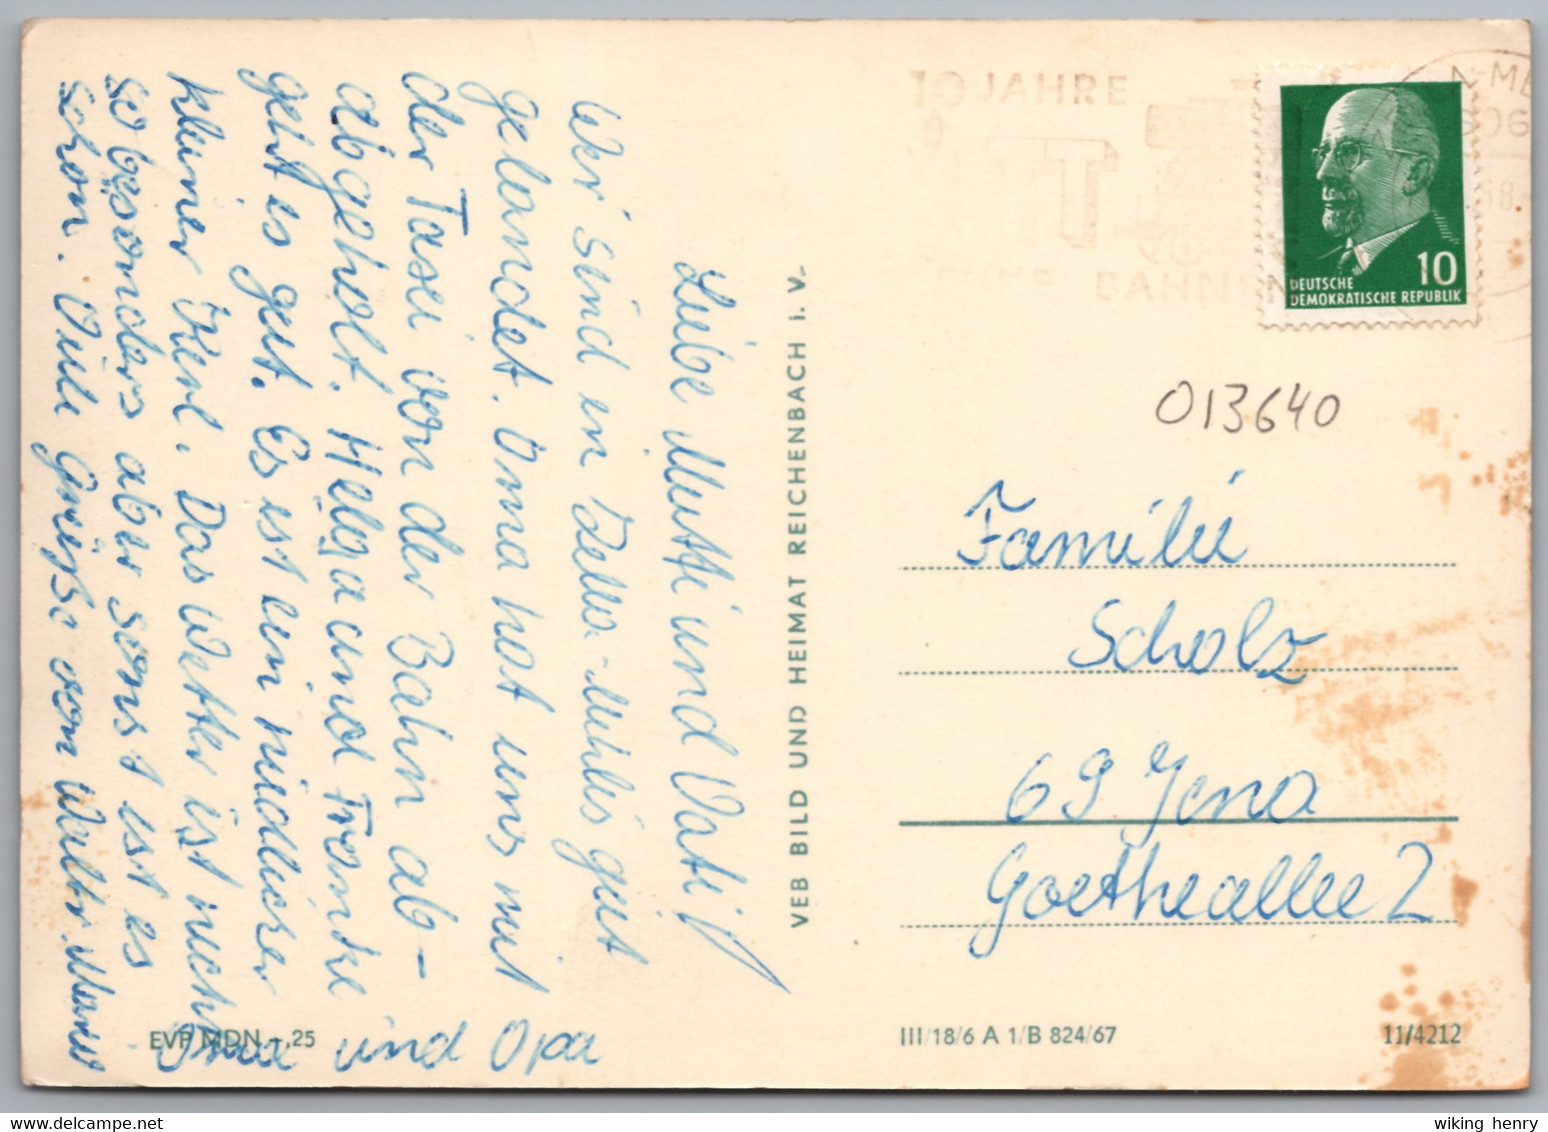 Liebe Mutti und Vati!
Wir sind in Zella-Mehlis gut
gelandet. Oma hat uns mit
der Taxi von der Bahn ab-
abgeholt. Helga und Franke
geht es gut. Es ist ein niedlicher
kleiner Kerl. Das Wetter ist nicht
so besonders aber sonst ist es
schön. Viele Grüße von Walter Maria
Oma und Opa
EVP MDN -,25
VEB BILD UND HEIMAT REICHENBACH i. V.
10 JAHRE
TT
BAHNEN
DEUTSCHE
DEMOKRATISCHE REPUBLIK
10
013640
Familie
Scholz
69 Jena
Goetheallee 2
III/18/6 A 1/B 824/67
11/4212
wiking henry